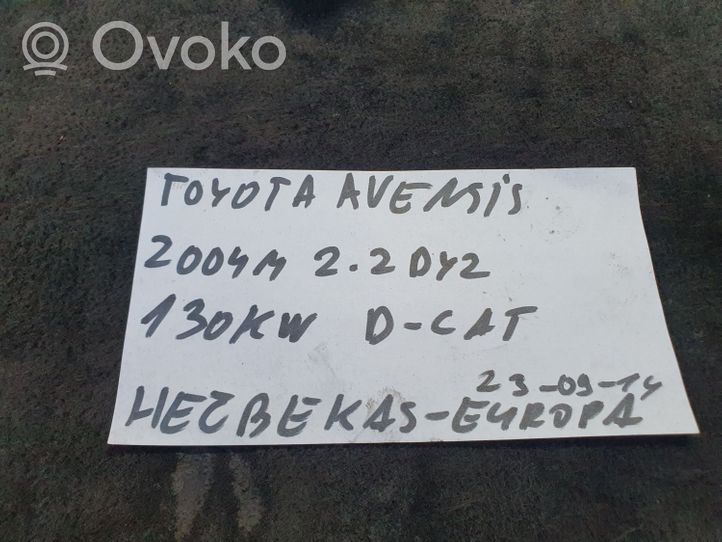 Ovoko
TOYOTA AVENSIS
2004M 2.2 DYZ
130KW D-CAT
23-09-14
HEČBEKAS-EUROPA